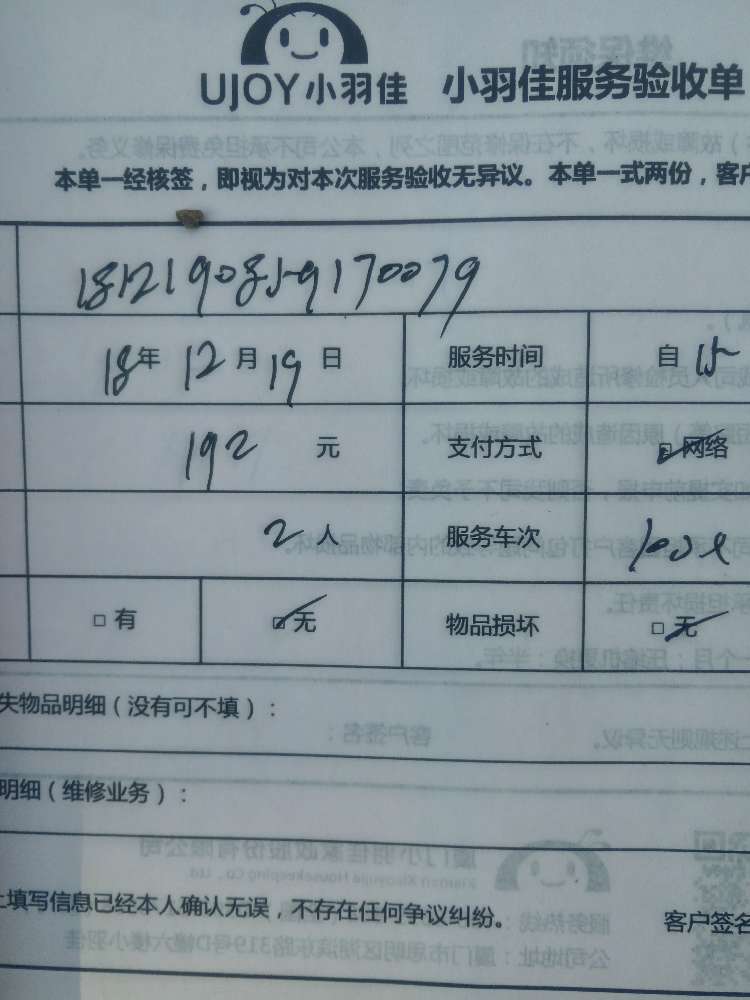 UJOY小羽佳 小羽佳服务验收单
本单一经核签，即视为对本次服务验收无异议。本单一式两份，客户
1812190859170079
18年 12月 19日 服务时间 自 15
192 元 支付方式 ☑网络
2人 服务车次
□有 ☑无 物品损坏 □无
失物品明细（没有可不填）：
明细（维修业务）：
上填写信息已经本人确认无误，不存在任何争议纠纷。 客户签名